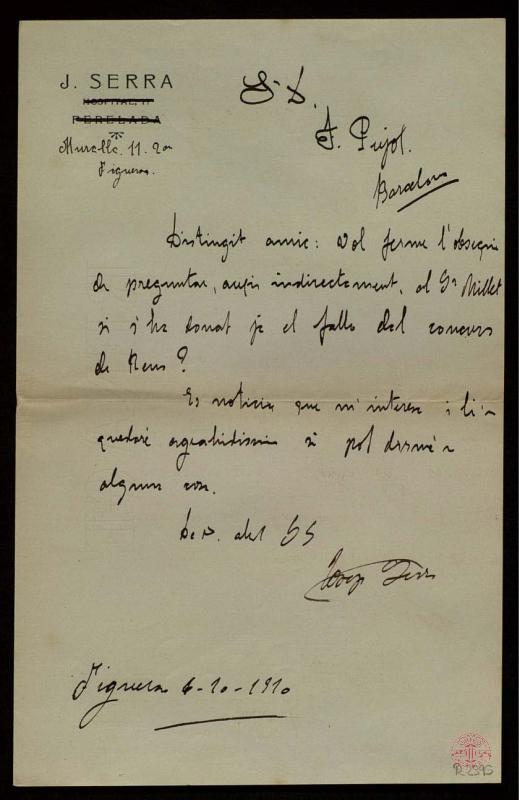 J. SERRA
HOSPITAL, 11
PERELADA
Muralla. 11. 2on
Figueras.
Sr D.
F. Pujol.
Barcelona
Distingit amic: Vol ferme l'obsequi
de preguntar, indirectament, al Sr Millet
si s'ha donat ja el fallo del concurs
de Reus?
Es noticia que m'interesa i li'n
quedaré agrahidissim si pot dirme'n
alguna cosa.
De V. afm SS
Josep Serra
Figueras 6-10-1910
R. 2395